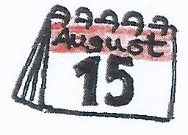 August
15